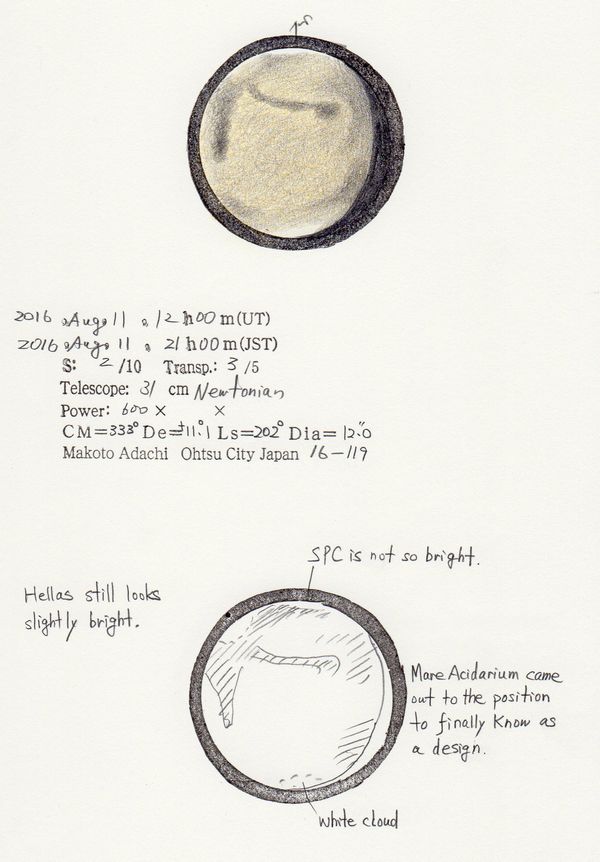 2016 Aug. 11, 12h00m(UT)
2016 Aug. 11, 21h00m(JST)
S: 2/10 Transp.: 3/5
Telescope: 31 cm Newtonian
Power: 600× ×
CM=333° De=+11.°1 Ls=202° Dia=12."0
Makoto Adachi Ohtsu City Japan 16-119
SPC is not so bright.
Hellas still looks
slightly bright.
Mare Acidarium came
out to the position
to finally Know as
a design.
White cloud